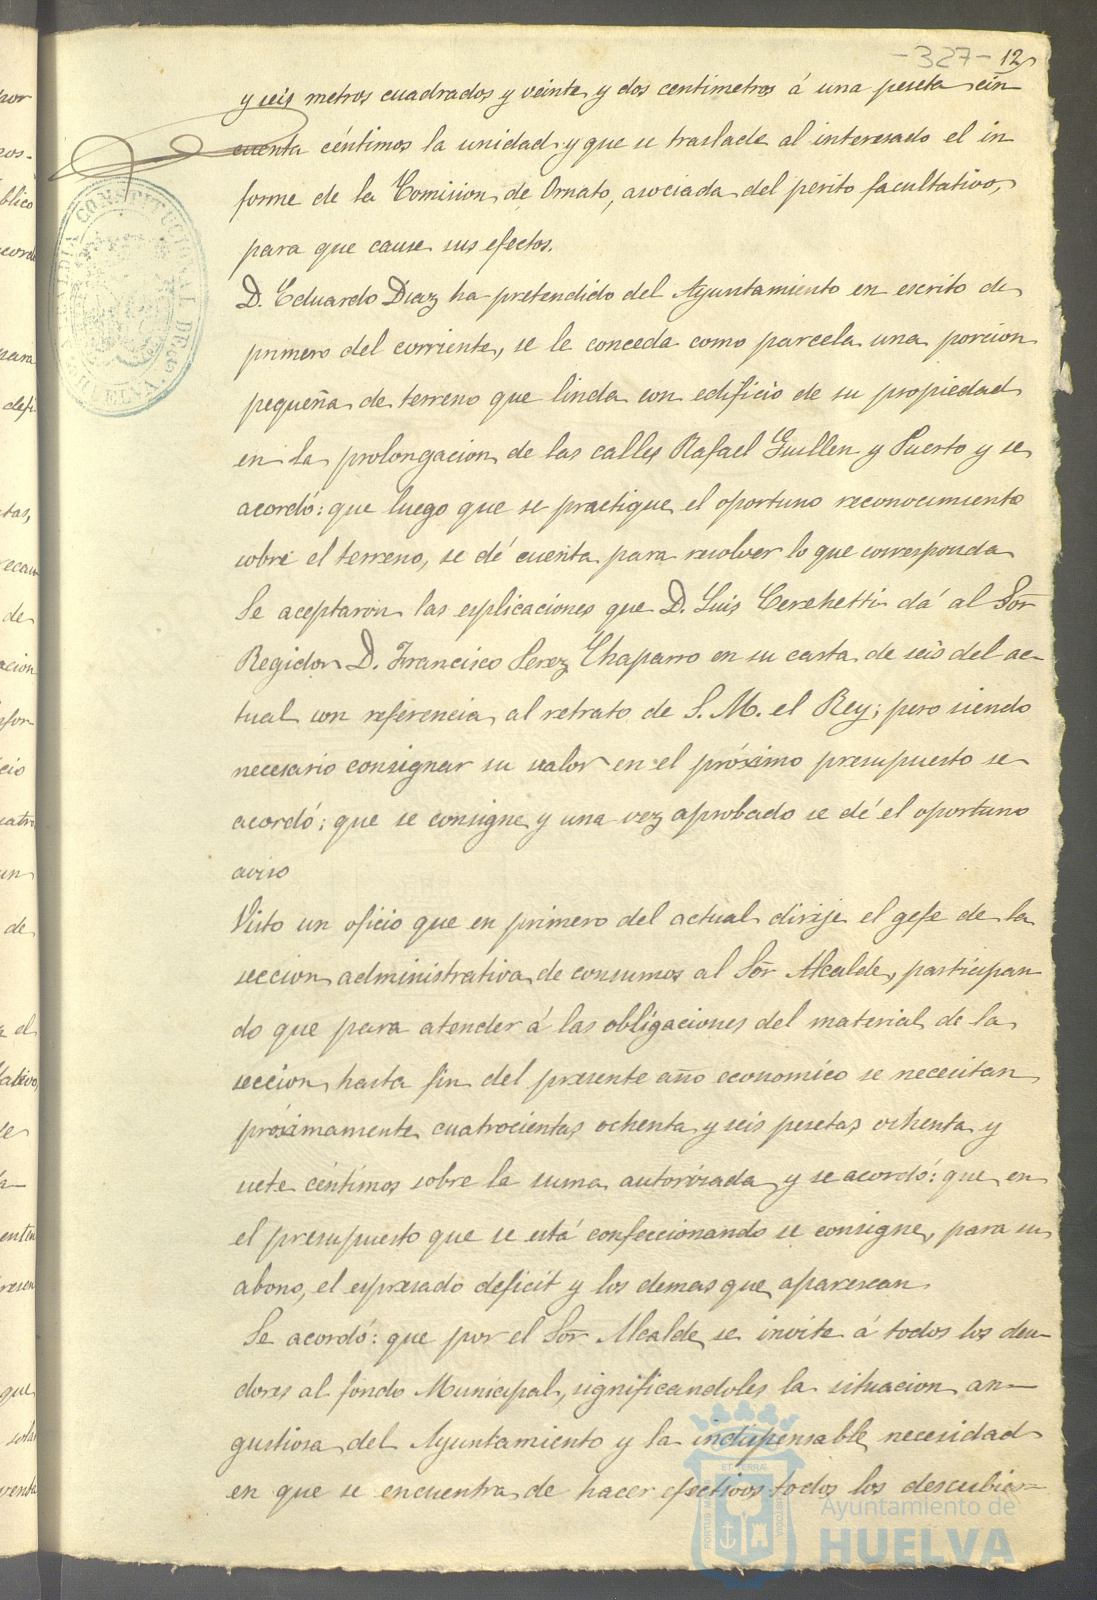 -327- 12
y seis metros cuadrados y veinte y dos centimetros á una peseta cin
cuenta céntimos la unidad y que se traslade al interesado el in
forme de la Comision de Ornato, asociada del perito facultativo,
para que cause sus efectos.
D. Eduardo Diaz ha pretendido del Ayuntamiento en escrito de
primero del corriente, se le conceda como parcela una porcion
pequeña de terreno que linda con edificio de su propiedad
en la prolongacion de las calles Rafael Guillen y Puerto y se
acordó: que luego que se practique el oportuno reconocimiento
sobre el terreno, se dé cuenta para resolver lo que corresponda
Se aceptaron las esplicaciones que D. Luis Cerchetti dá al Sor
Regidor D. Francisco Perez Chaparro en su carta de seis del ac-
tual con referencia al retrato de S. M. el Rey; pero siendo
necesario consignar su valor en el próximo presupuesto se
acordó: que se consigne y una vez aprobado se dé el oportuno
aviso
Visto un oficio que en primero del actual dirije el gefe de la
seccion administrativa de consumos al Sor Alcalde, participan
do que para atender á las obligaciones del material de la
seccion hasta fin del presente año economico se necesitan
próximamente cuatrocientas ochenta y seis pesetas ochenta y
siete céntimos sobre la suma autorisada y se acordó: que en
el presupuesto que se está confeccionando se consigne, para su
abono, el espresado deficit y los demas que aparescan
Se acordó: que por el Sor Alcalde se invite á todos los deu-
dores al fondo Municipal, significandoles la situacion an-
gustiosa del Ayuntamiento y la indispensable necesidad
en que se encuentra de hacer efectivos todos los descubier-
ALCALDIA CONSTITUCIONAL DE HUELVA
PORTUS MARIS ET TERRÆ CUSTODIA
Ayuntamiento de
HUELVA